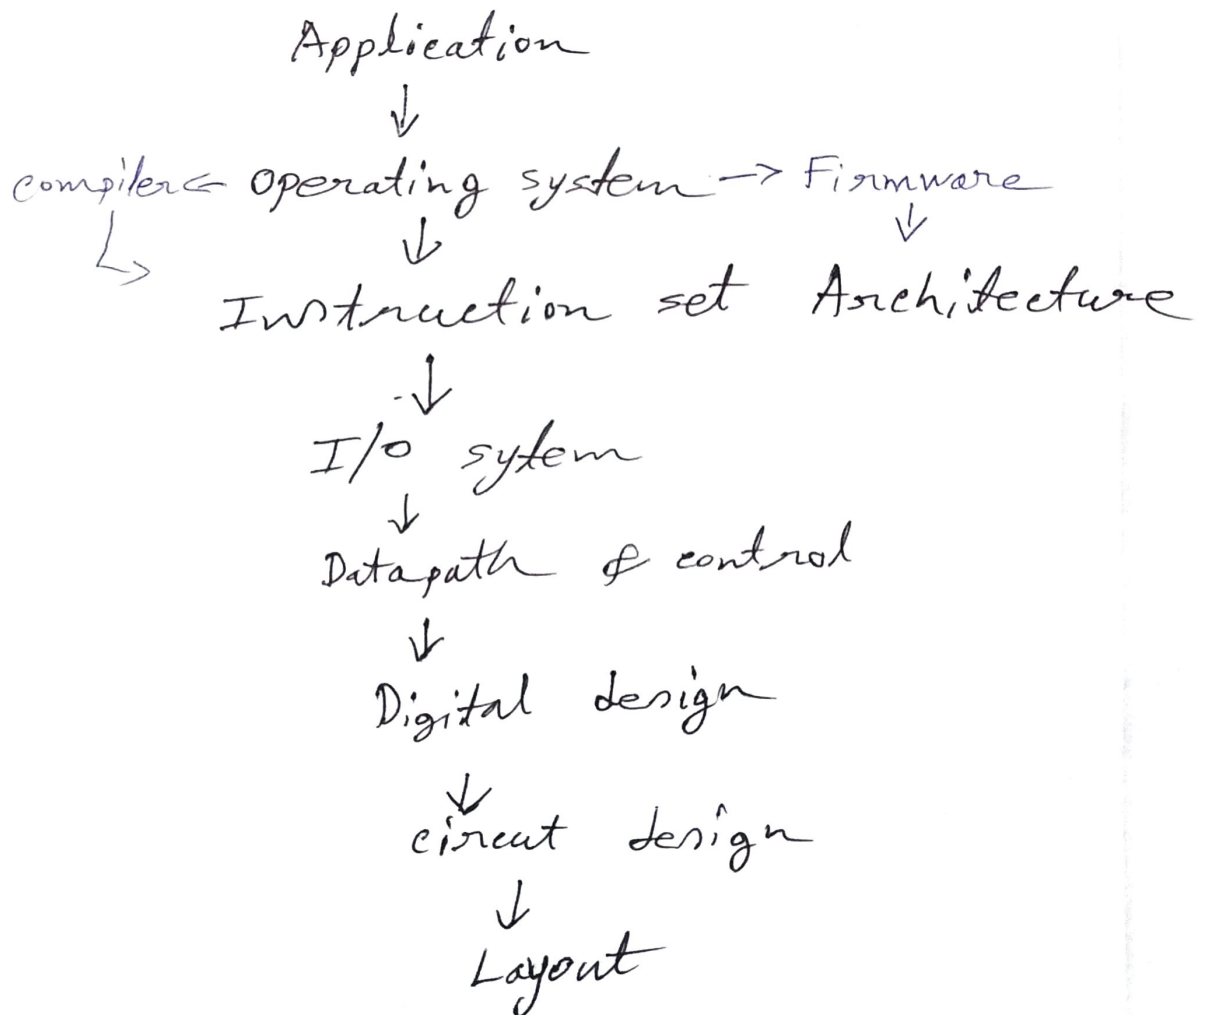 Application
↓
compiler ← operating system → Firmware
↓ ↓
Instruction set Architecture
↓
I/o sytem
↓
Datapath & control
↓
Digital design
↓
circut design
↓
Layout